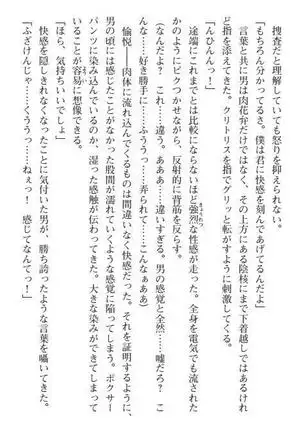 捜査だと理解していても怒りを抑えられない。
「もちろん分かってるさ。僕は君に快感を刻んであげてるんだよ」
言葉と共に男は肉花弁だけではなく、その上方にある陰核にまで下着越しではあるけれ
ど指を添えてきた。クリトリスを指でグリッと転がすように刺激してくる。
「んひんんっ！」
途端にこれまでとは比較にならないほど強烈な性感が走った。全身を電気でも流された
かのようにビクつかせながら、反射的に背筋を反らす。
（なんだよ？　これ……違う。あああ……違いすぎる。男の感覚と全然……嘘だろ？　こ
んな……好き勝手に……ふううっ……弄られて……こんなぁああ）
愉悦――肉体に流れ込んでくるものは間違いなく快感だった。それを証明するように、
男の頃には感じたことがなかった股間が濡れていくような感覚に陥ってしまう。ボクサー
パンツに染み込んでいるのか、湿った感触が伝わってきた。大きな染みができてしまって
いることが容易に想像できる。
「ほら、気持ちいいでしょ」
快感を隠しきれなくなったことに気付いた男が、勝ち誇ったような言葉を囁いてきた。
「ふざけんじゃ……くうっっ……ねぇっ！　感じてなんてっ！」